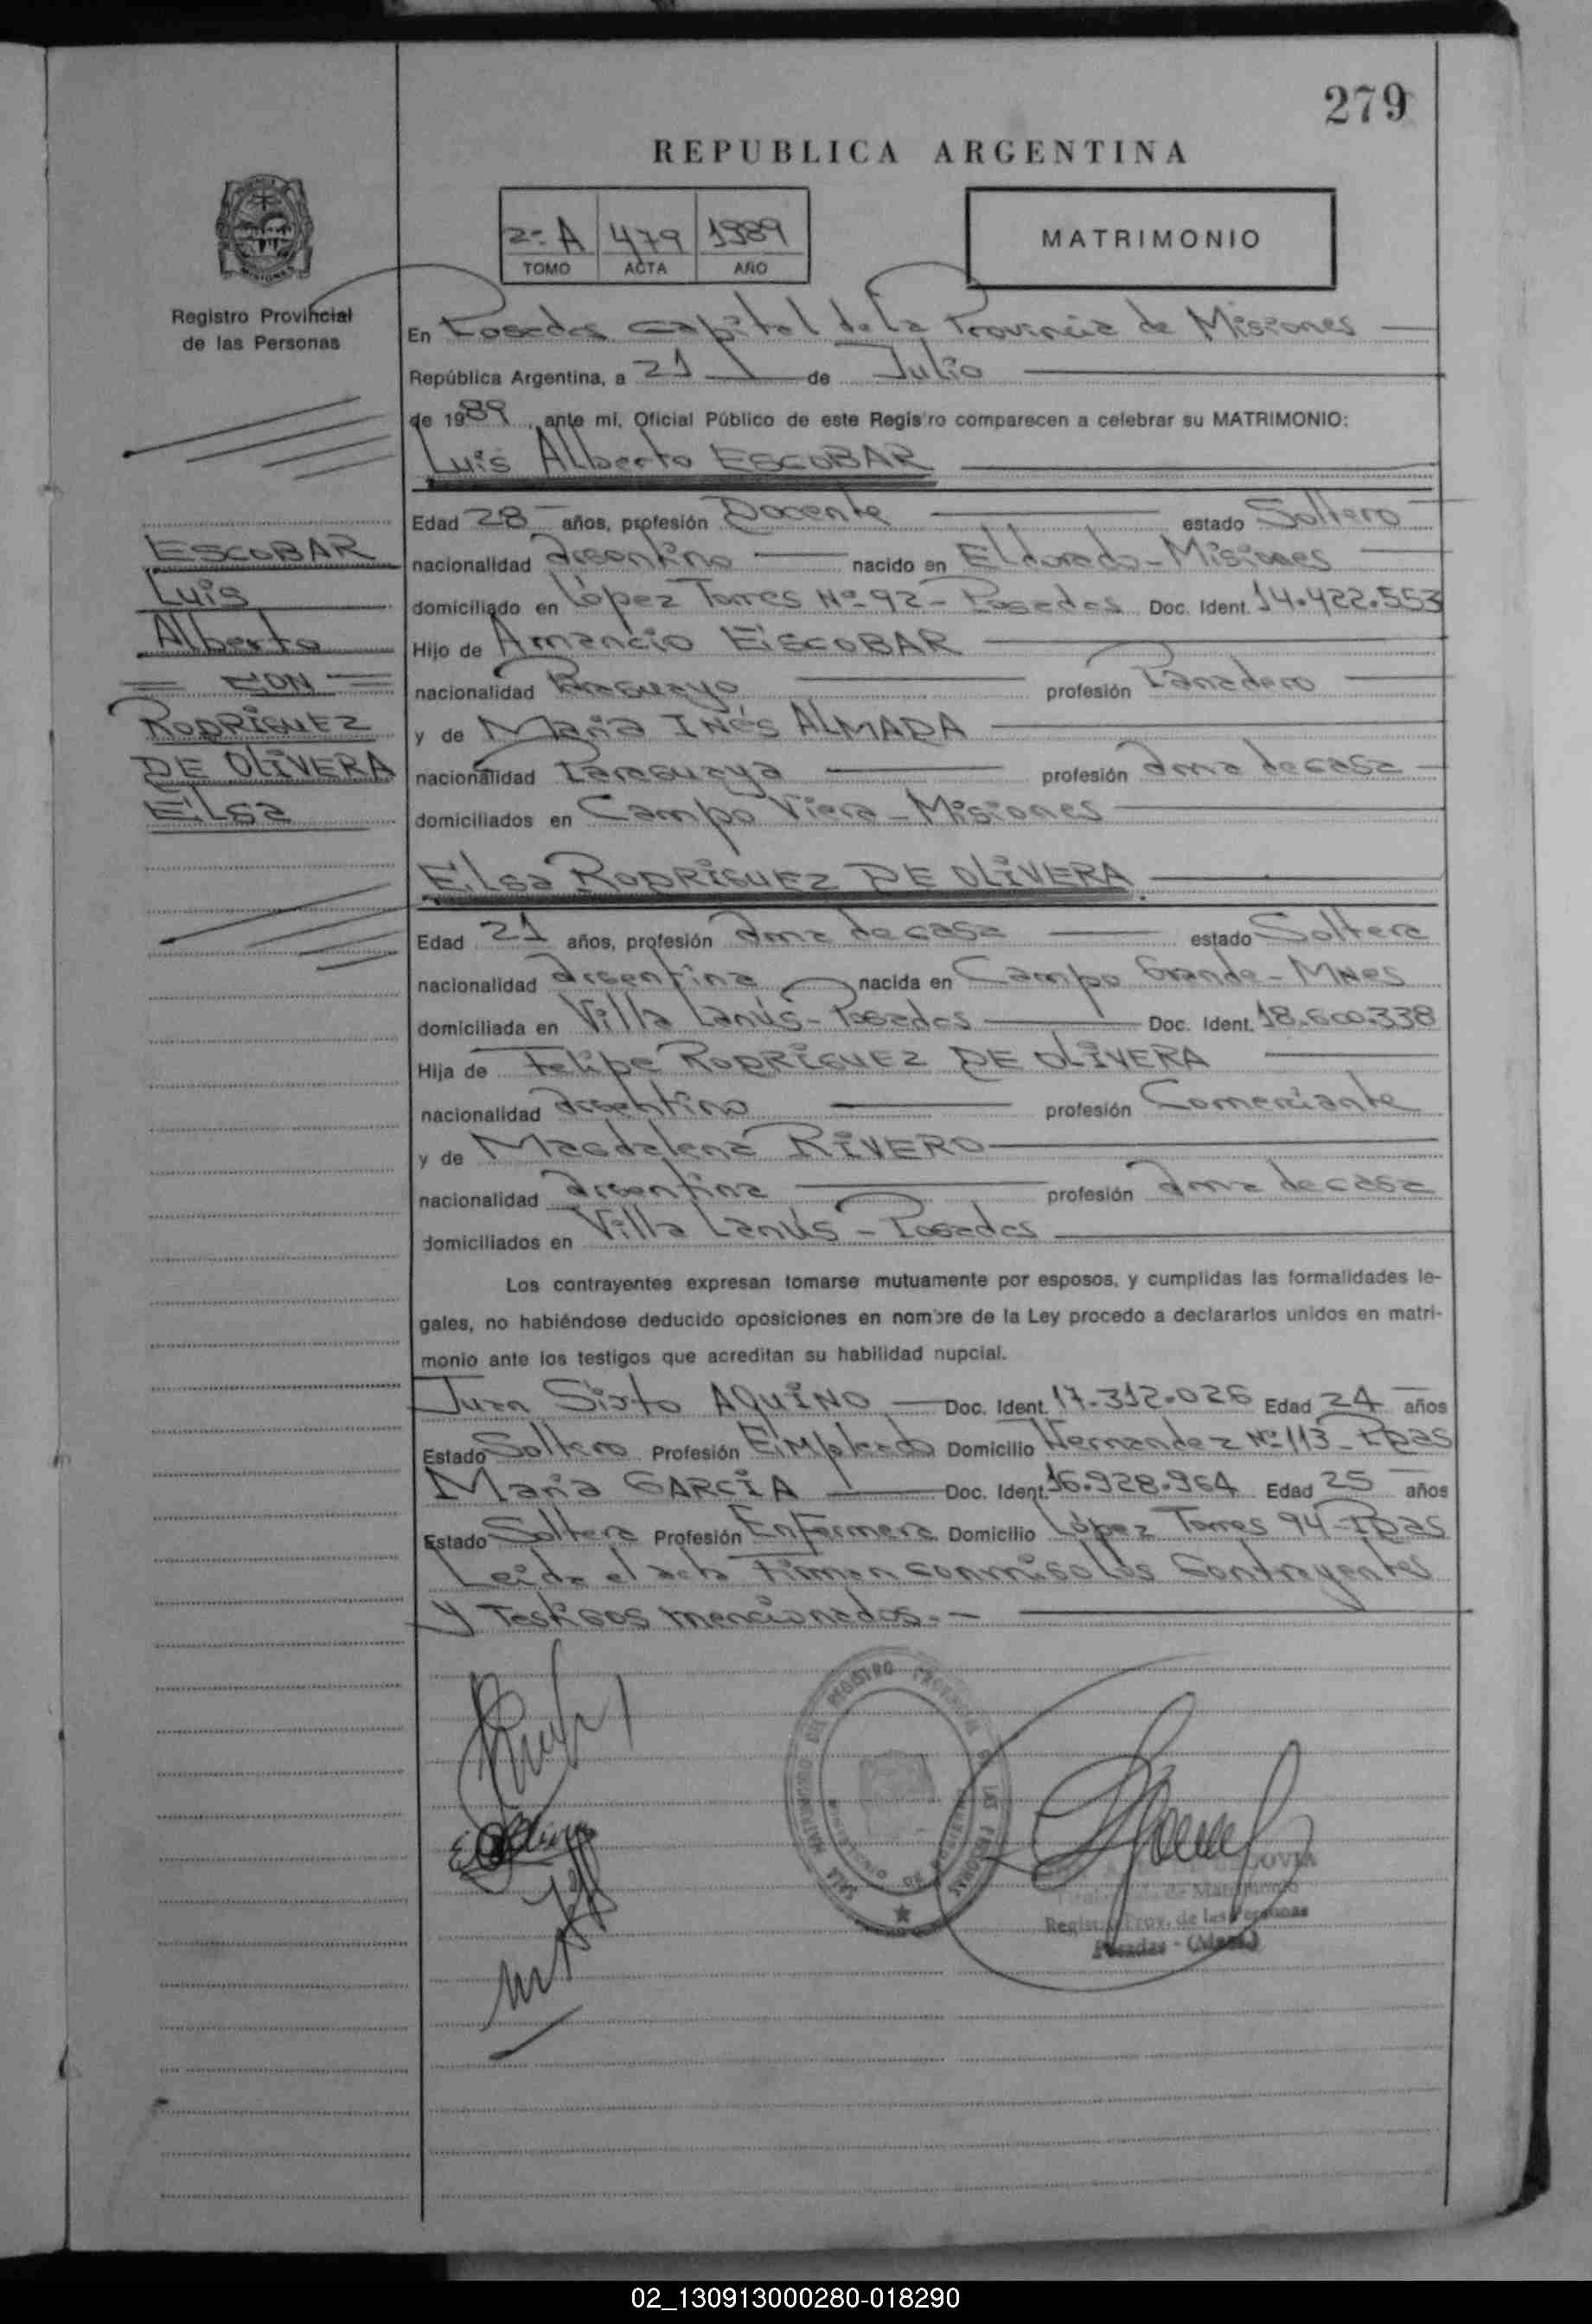 279
REPUBLICA ARGENTINA
2º A 479 1989
TOMO ACTA AÑO
MATRIMONIO
Registro Provincial
de las Personas
En Posadas capital de la Provincia de Misiones
República Argentina, a 21 de Julio
de 1989, ante mí, Oficial Público de este Registro comparecen a celebrar su MATRIMONIO:
Luis Alberto ESCOBAR
Edad 28 años, profesión Docente estado Soltero
nacionalidad Argentino nacido en Eldorado - Misiones
domiciliado en López Torres Nº 92 - Posadas Doc. Ident. 14.422.553
Hijo de Amancio ESCOBAR
nacionalidad Paraguayo profesión Panadero
y de María INÉS ALMADA
nacionalidad Paraguaya profesión Ama de casa
domiciliados en Campo Viera - Misiones
ESCOBAR
Luis
Alberto
= CON =
RODRIGUEZ
DE OLIVERA
Elsa
Elsa RODRIGUEZ DE OLIVERA
Edad 21 años, profesión Ama de casa estado Soltera
nacionalidad Argentina nacida en Campo Grande - Mnes
domiciliada en Villa Lanús - Posadas Doc. Ident. 18.600.338
Hija de Felipe RODRIGUEZ DE OLIVERA
nacionalidad Argentino profesión Comerciante
y de Magdalena RIVERO
nacionalidad Argentina profesión Ama de casa
domiciliados en Villa Lanús - Posadas
Los contrayentes expresan tomarse mutuamente por esposos, y cumplidas las formalidades le-
gales, no habiéndose deducido oposiciones en nombre de la Ley procedo a declararlos unidos en matri-
monio ante los testigos que acreditan su habilidad nupcial.
Juan Sixto AQUINO Doc. Ident. 17.312.026 Edad 24 años
Estado Soltero Profesión Empleado Domicilio Hernandez Nº 113 - Pdas
María GARCÍA Doc. Ident. 16.928.964 Edad 25 años
Estado Soltera Profesión Enfermera Domicilio López Torres 94 - Pdas
Leida el acta Firman conmigo los Contrayentes
y Testigos mencionados. -
DEL REGISTRO PROVINCIAL DE LAS PERSONAS
de Matrimonio
Registro Prov. de las Personas
Posadas - (Mnes.)
02_130913000280-018290